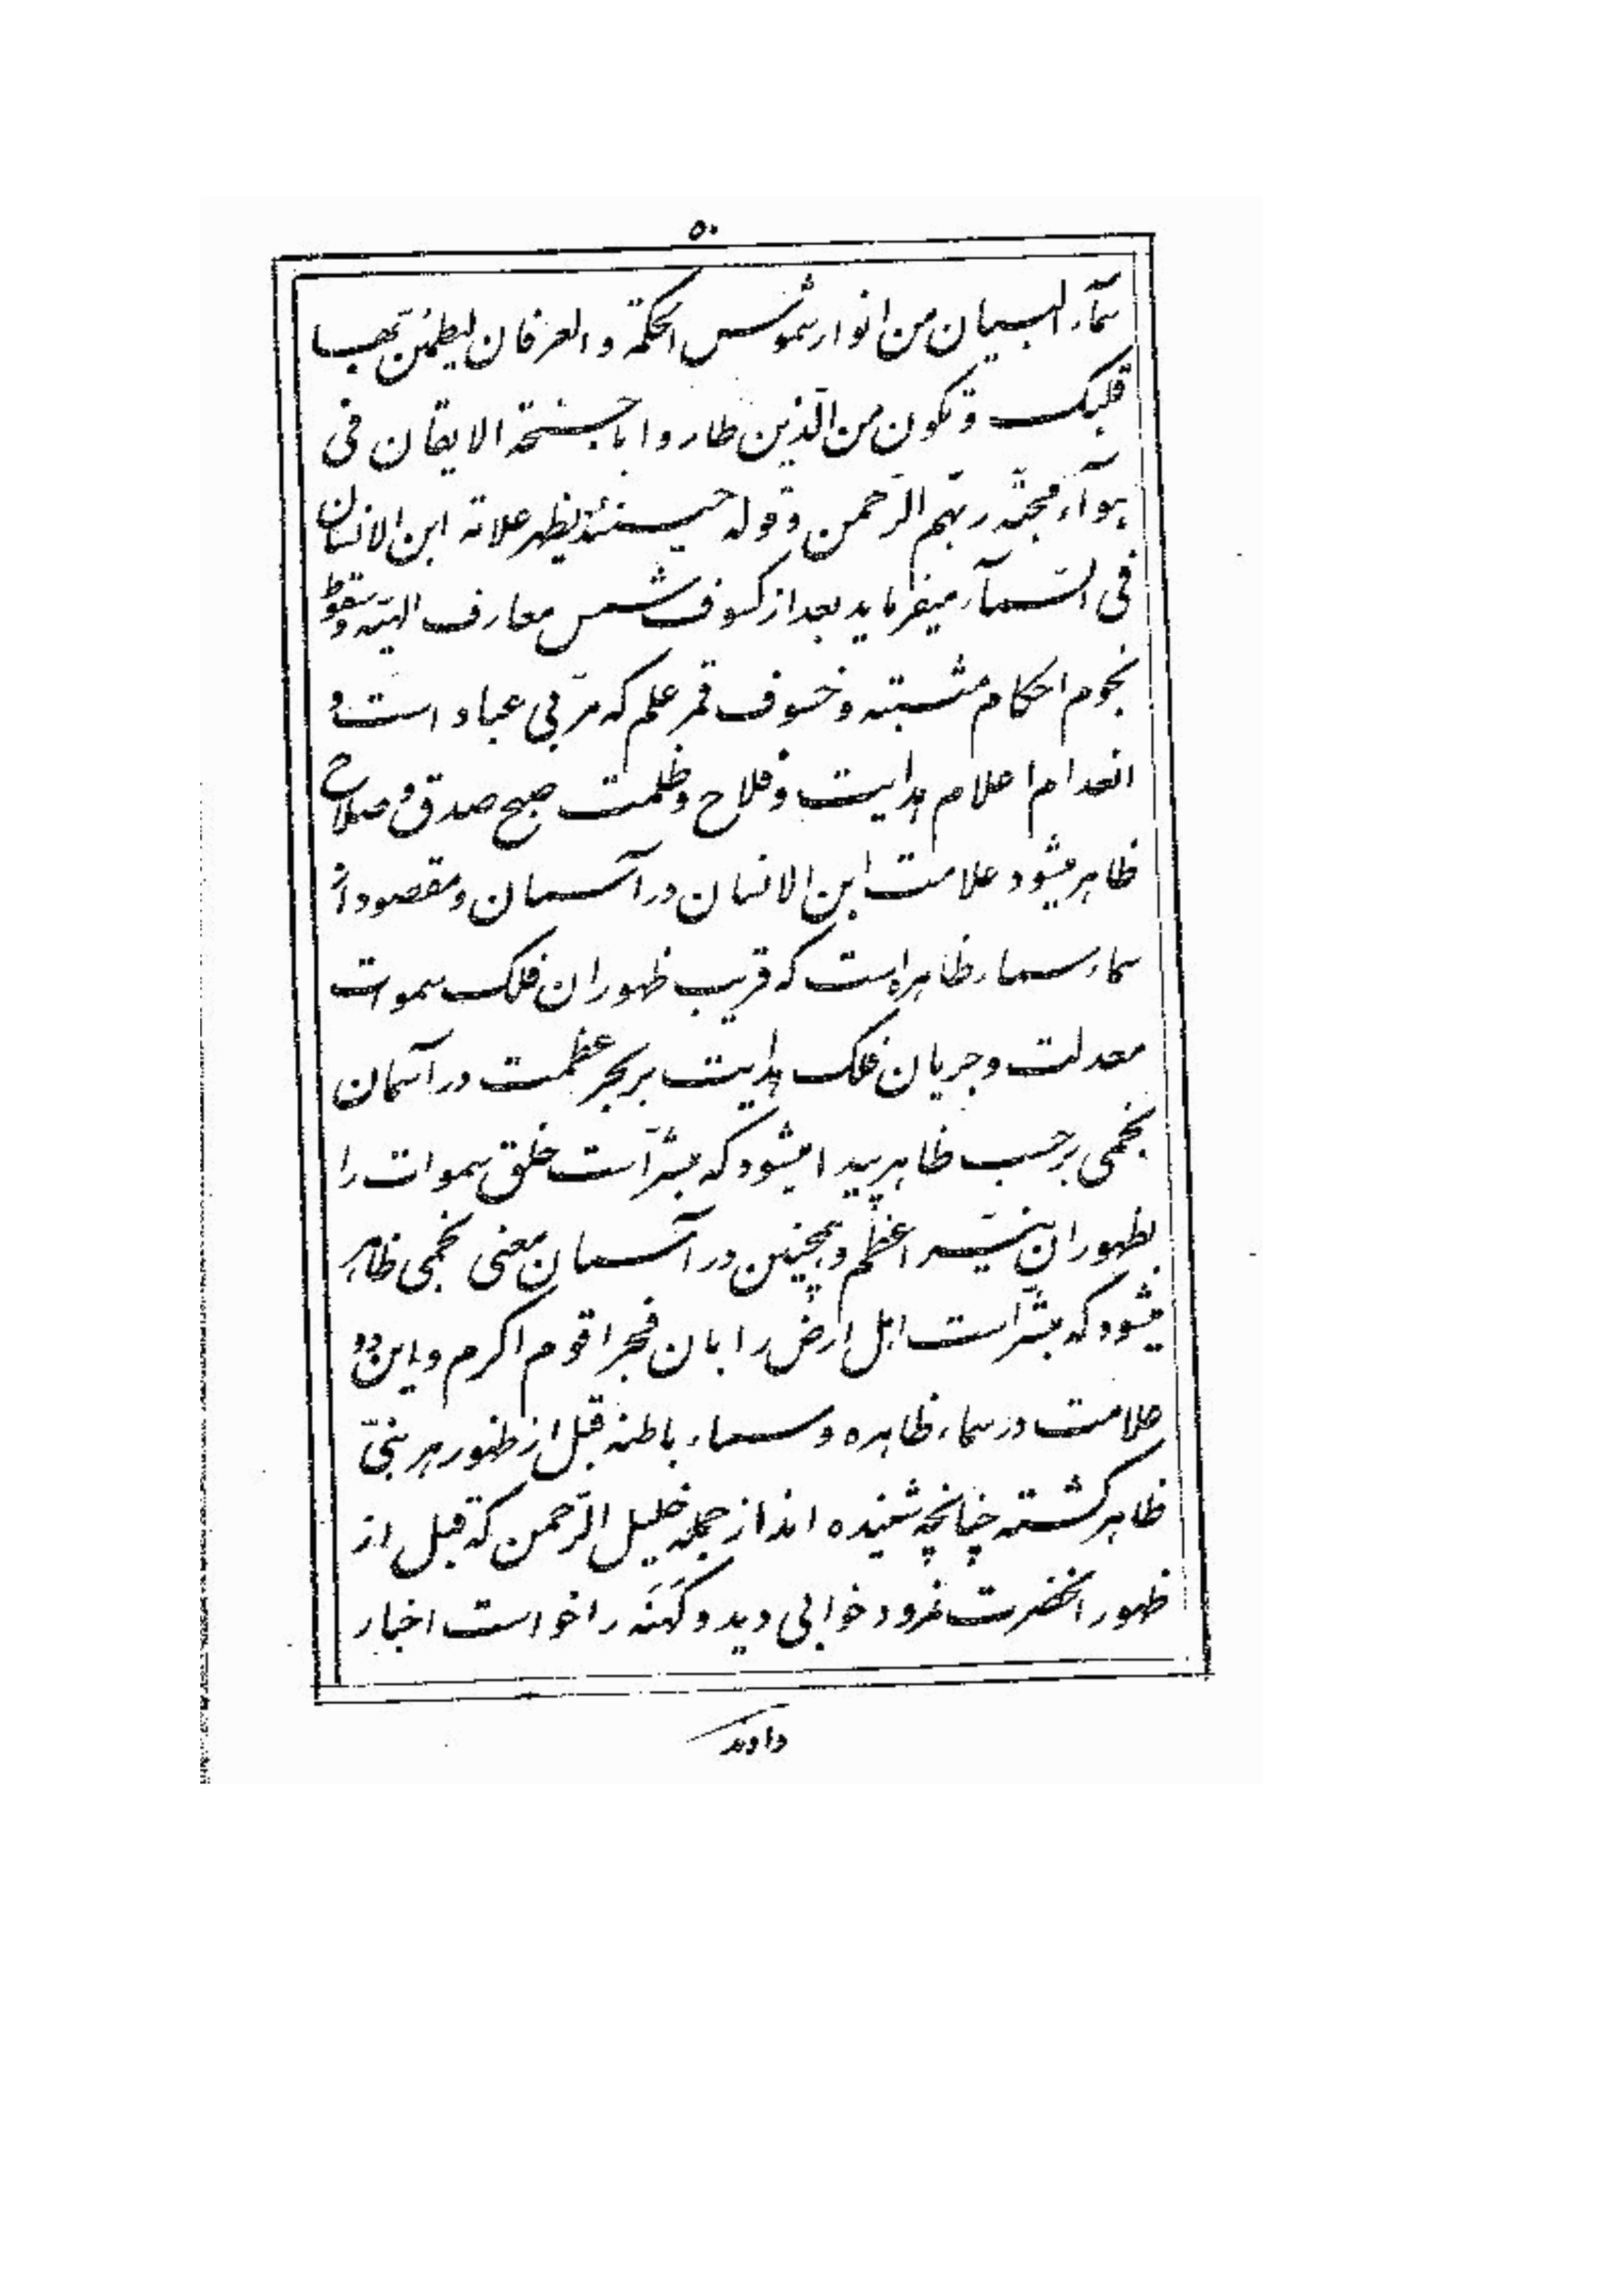 ۵۰
سمآء البیان من انوار شموس الحکمة و العرفان لیطمئن بها
قلبک و تکون من الّذین طاروا باجنحة الایقان فی
هوآء محبّة ربّهم الرّحمن و قوله حینئذ یظهر علامة ابن الانسان
فی السّمآء میفرماید بعد از کسوف شمس معارف الهیّه و سقوط
نجوم احکام مثبته و خسوف قمر علم که مربّی عباد است و
انعدام اعلام هدایت و فلاح و ظلمت صبح صدق و صلاح
ظاهر میشود علامت ابن الانسان در آسمان و مقصود از
سماء سماء ظاهره است که قریب ظهور ان فلک سموات
معدلت و جریان فلک هدایت بر بحر عظمت در آسمان
نجمی بر حسب ظاهر پیدا میشود که مبشّر است خلق سموات را
بظهور ان نیّر اعظم و همچنین در آسمان معنی نجمی ظاهر
میشود که مبشّر است اهل ارض را بان فجر اقوم اکرم و این دو
علامت در سماء ظاهره و سماء باطنه قبل از ظهور هر نبیّ
ظاهر گشته چنانچه شنیده اند از جمله خلیل الرّحمن که قبل از
ظهور انحضرت نمرود خوابی دید و کَهَنه را خواست اخبار
دادند